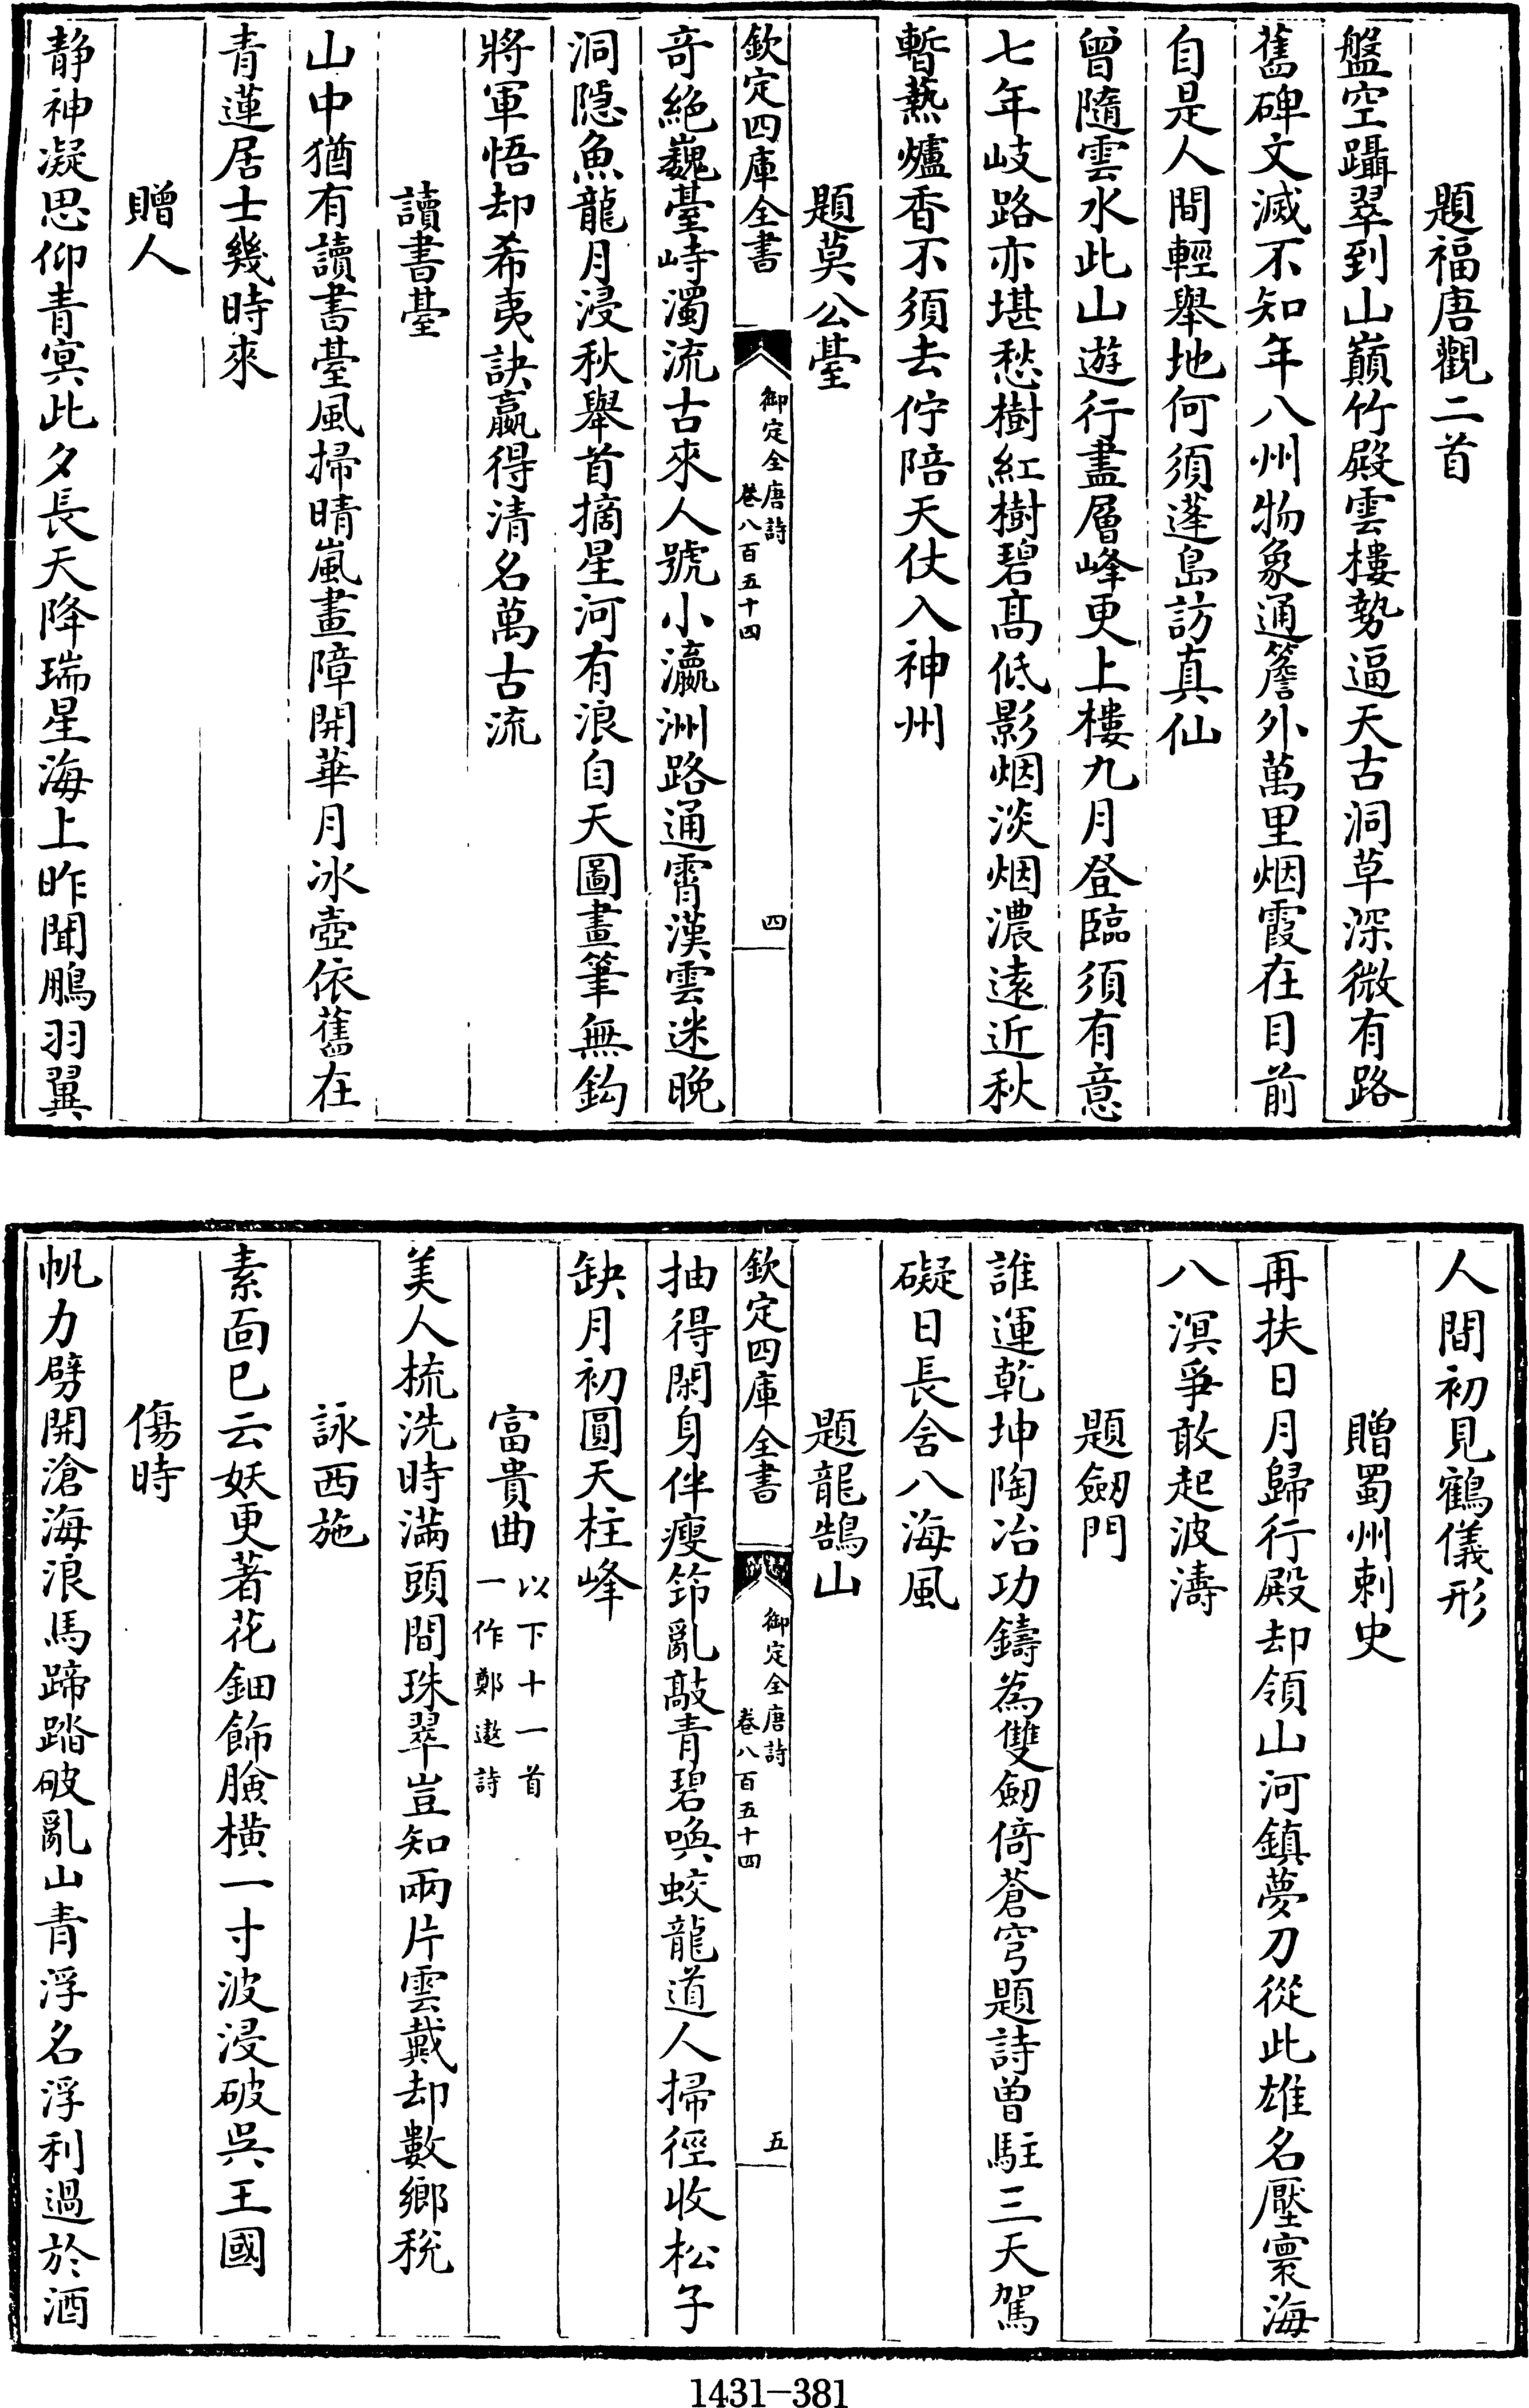 題福唐觀二首
盤空躡翠到山巔竹殿雲樓勢逼天古洞草深微有路
舊碑文滅不知年八州物象通簷外萬里烟霞在目前
自是人間輕舉地何須蓬島訪真仙
曾隨雲水此山遊行盡層峰更上樓九月登臨須有意
七年岐路亦堪愁樹紅樹碧髙低影烟淡烟濃遠近秋
暫熱爐香不須去佇陪天仗入神州
題莫公臺
欽定四庫全書
御定全唐詩
卷八百五十四
四
奇絶巍臺峙濁流古來人號小瀛洲路通霄漢雲迷晚
洞隠魚龍月浸秋舉首摘星河有浪自天圖畫筆無鈎
將軍悟却希夷訣贏得清名萬古流
讀書臺
山中猶有讀書臺風掃晴嵐畫障開華月冰壺依舊在
青蓮居士幾時來
贈人
静神凝思仰青冥此夕長天降瑞星海上昨聞鵬羽翼
人間初見鶴儀形
贈蜀州刺史
再扶日月歸行殿却領山河鎮夢刀從此雄名壓寰海
八溟爭敢起波濤
題劒門
誰運乾坤陶冶功鑄為雙劒倚蒼穹題詩曾駐三天駕
礙日長含八海風
題龍鵠山
欽定四庫全書
御定全唐詩
卷八百五十四
五
抽得閑身伴瘦筇亂敲青碧喚蛟龍道人掃徑收松子
缺月初圓天柱峰
富貴曲 以下十一首
一作鄭遨詩
美人梳洗時滿頭間珠翠豈知兩片雲戴却數鄉稅
詠西施
素面已云妖更著花鈿飾臉横一寸波浸破吳王國
傷時
帆力劈開滄海浪馬蹄踏破亂山青浮名浮利過於酒
1431-381